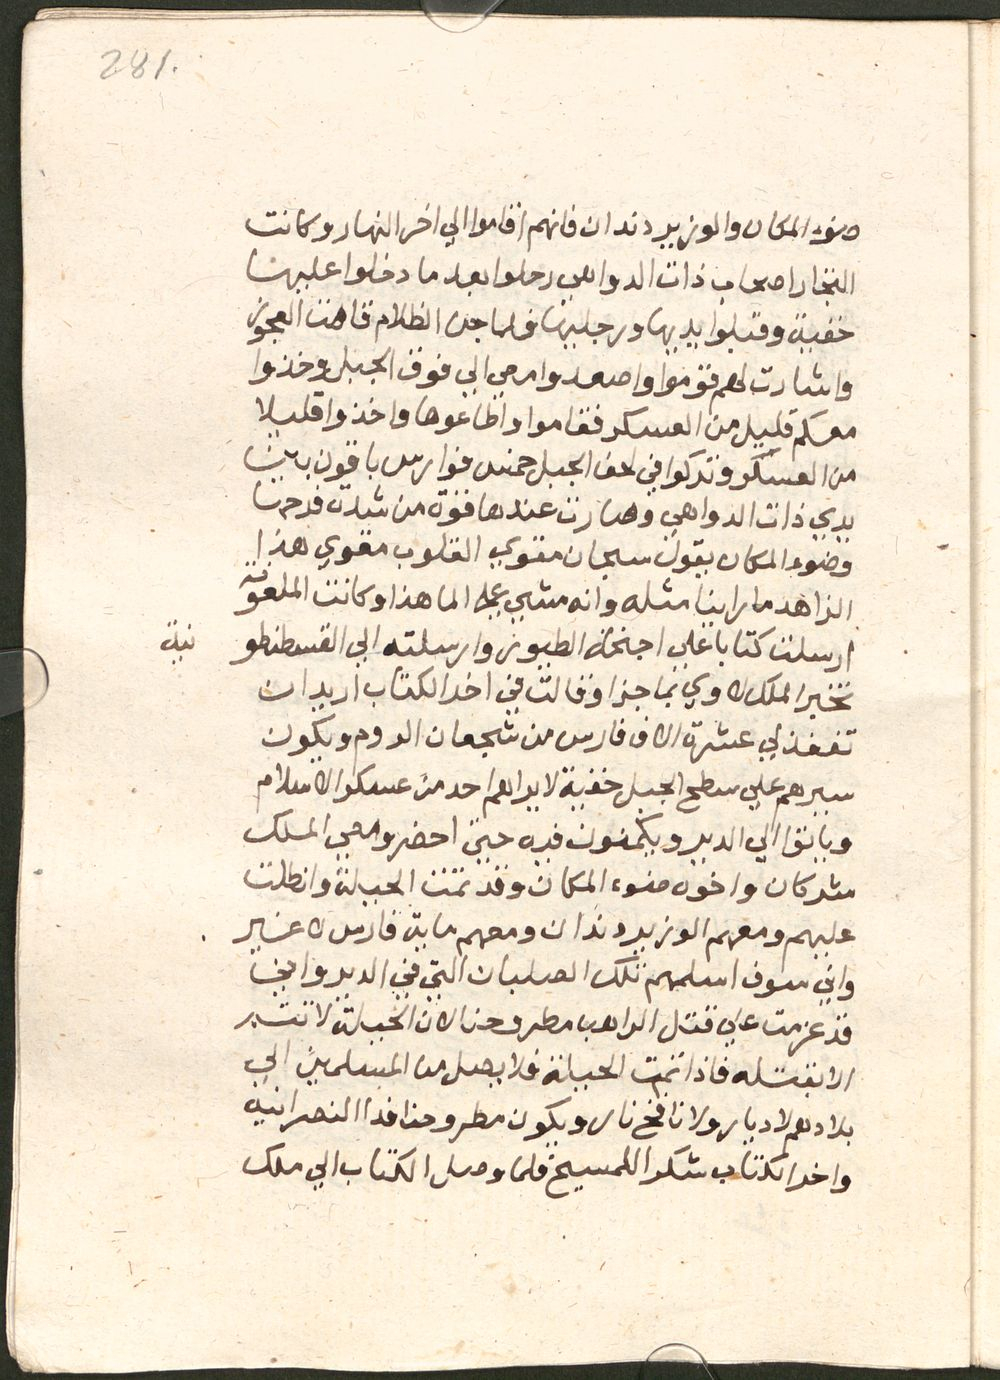 281.
ضوء المكان والوزير دندان فانهم اقاموا الي اخر النهار وكانت
التجار اصحاب ذات الدواهي رحلوا بعد ما دخلوا عليها
خفية وقبلوا يديها ورجليها فلما جن الظلام قامت العجوز
واشارت لهم قوموا واصعدوا معي الي فوق الجبل وخذوا
معكم قليل من العسكر فقاموا واطاعوها واخذوا قليلا
من العسكر وتركوا في لحف الجبل خمس فوارس باقون بين
يدي ذات الدواهي وصارت عندها قوة من شدة فرحها
وضوء المكان يقول سبحان مقوي القلوب مقوي هذا
الزاهد ما راينا مثله وانه مشي علي الما هذا وكانت الملعونة
ارسلت كتابا علي اجنحة الطيور وارسلته الي القسطنطو
نية
تخبر الملك بما جرا وقالت في اخر الكتاب اريد ان
تنفذ لي عشرة الاف فارس من شجعان الروم ويكون
سيرهم علي سطح الجبل خفية لا يراهم احد من عسكر الاسلام
وياتوا الي الدير ويكمنون فيه حتي احضر ومعي الملك
شركان واخوه ضوء المكان وقد تمت الحيلة وانطلت
عليهم ومعهم الوزير دندان ومعهم ماية فارس لا غير
واني سوف اسلمهم تلك الصلبان التي في الدير وايضا
قد عزمت علي قتل الراهب مطروحنا لان الحيلة لا تتم
الا بقتله فاذا تمت الحيلة فلا يصل من المسلمين الي
بلادهم لا ديار ولا نافخ نار ويكون مطروحنا فدا النصرانية
واخر الكتاب شكرا للمسيح فلما وصل الكتاب الي ملك